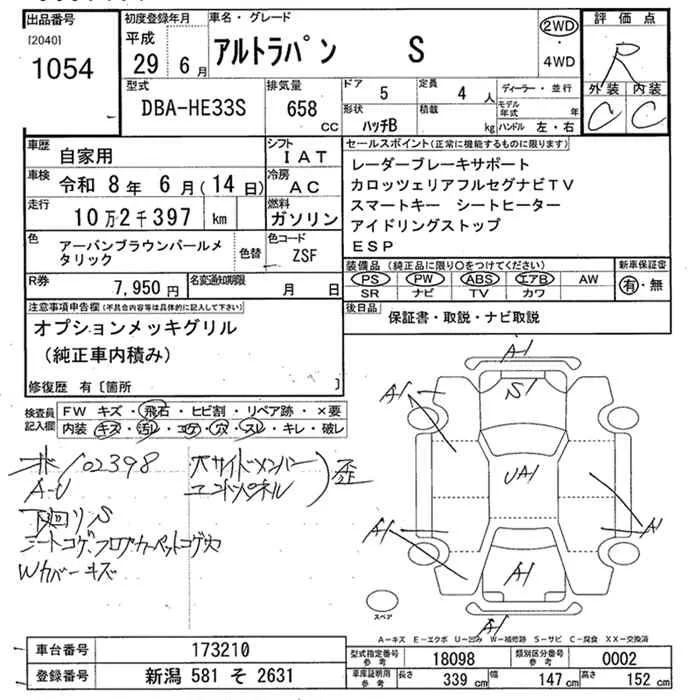 出品番号
[2040]
1054
初度登録年月
平成
29年6月
車名・グレード
アルトラパン S
2WD
・
4WD
評価点
R
外装 内装
C C
型式
DBA-HE33S
排気量
658
CC
ドア
5
定員
4人
形状
ハッチB
積載
kg
ディーラー・並行
モデル年式 年
ハンドル 左・右
車歴
自家用
シフト
IAT
車検
令和 8年 6月(14日)
冷房
AC
走行
10万2千397 km
燃料
ガソリン
色
アーバンブラウンパールメタリック
色替
色コード
ZSF
R券
7,950円
名変通知期限
月 日
セールスポイント(正常に機能するものに限ります)
レーダーブレーキサポート
カロッツェリアフルセグナビTV
スマートキー シートヒーター
アイドリングストップ
ESP
装備品(純正品に限り○をつけてください)
PS PW ABS エアB AW
SR ナビ TV カワ
新車保証書
有・無
後日品
保証書・取説・ナビ取説
注意事項申告欄(不具合内容等は具体的に記入して下さい)
オプションメッキグリル
(純正車内積み)
修復歴 有[箇所 ]
検査員記入欄
FW キズ・飛石・ヒビ割・リペア跡・×要
内装 キズ・汚レ・コゲ・穴・スレ・キレ・破レ
102398
A-U
サイドメンバー
エンドパネル
歪
下回りS
シートコゲ、フロアカーペットコゲ穴
Wカバーキズ
A1
S1
A1
UA1
A1
A1
A1
A1
スペア
A-キズ E-エクボ U-凹み W-補修跡 S-サビ C-腐食 XX-交換済
車台番号
173210
登録番号
新潟 581 そ 2631
型式指定番号
参考
18098
類別区分番号
参考
0002
車庫証明用
参考
長さ 339 cm
幅 147 cm
高さ 152 cm